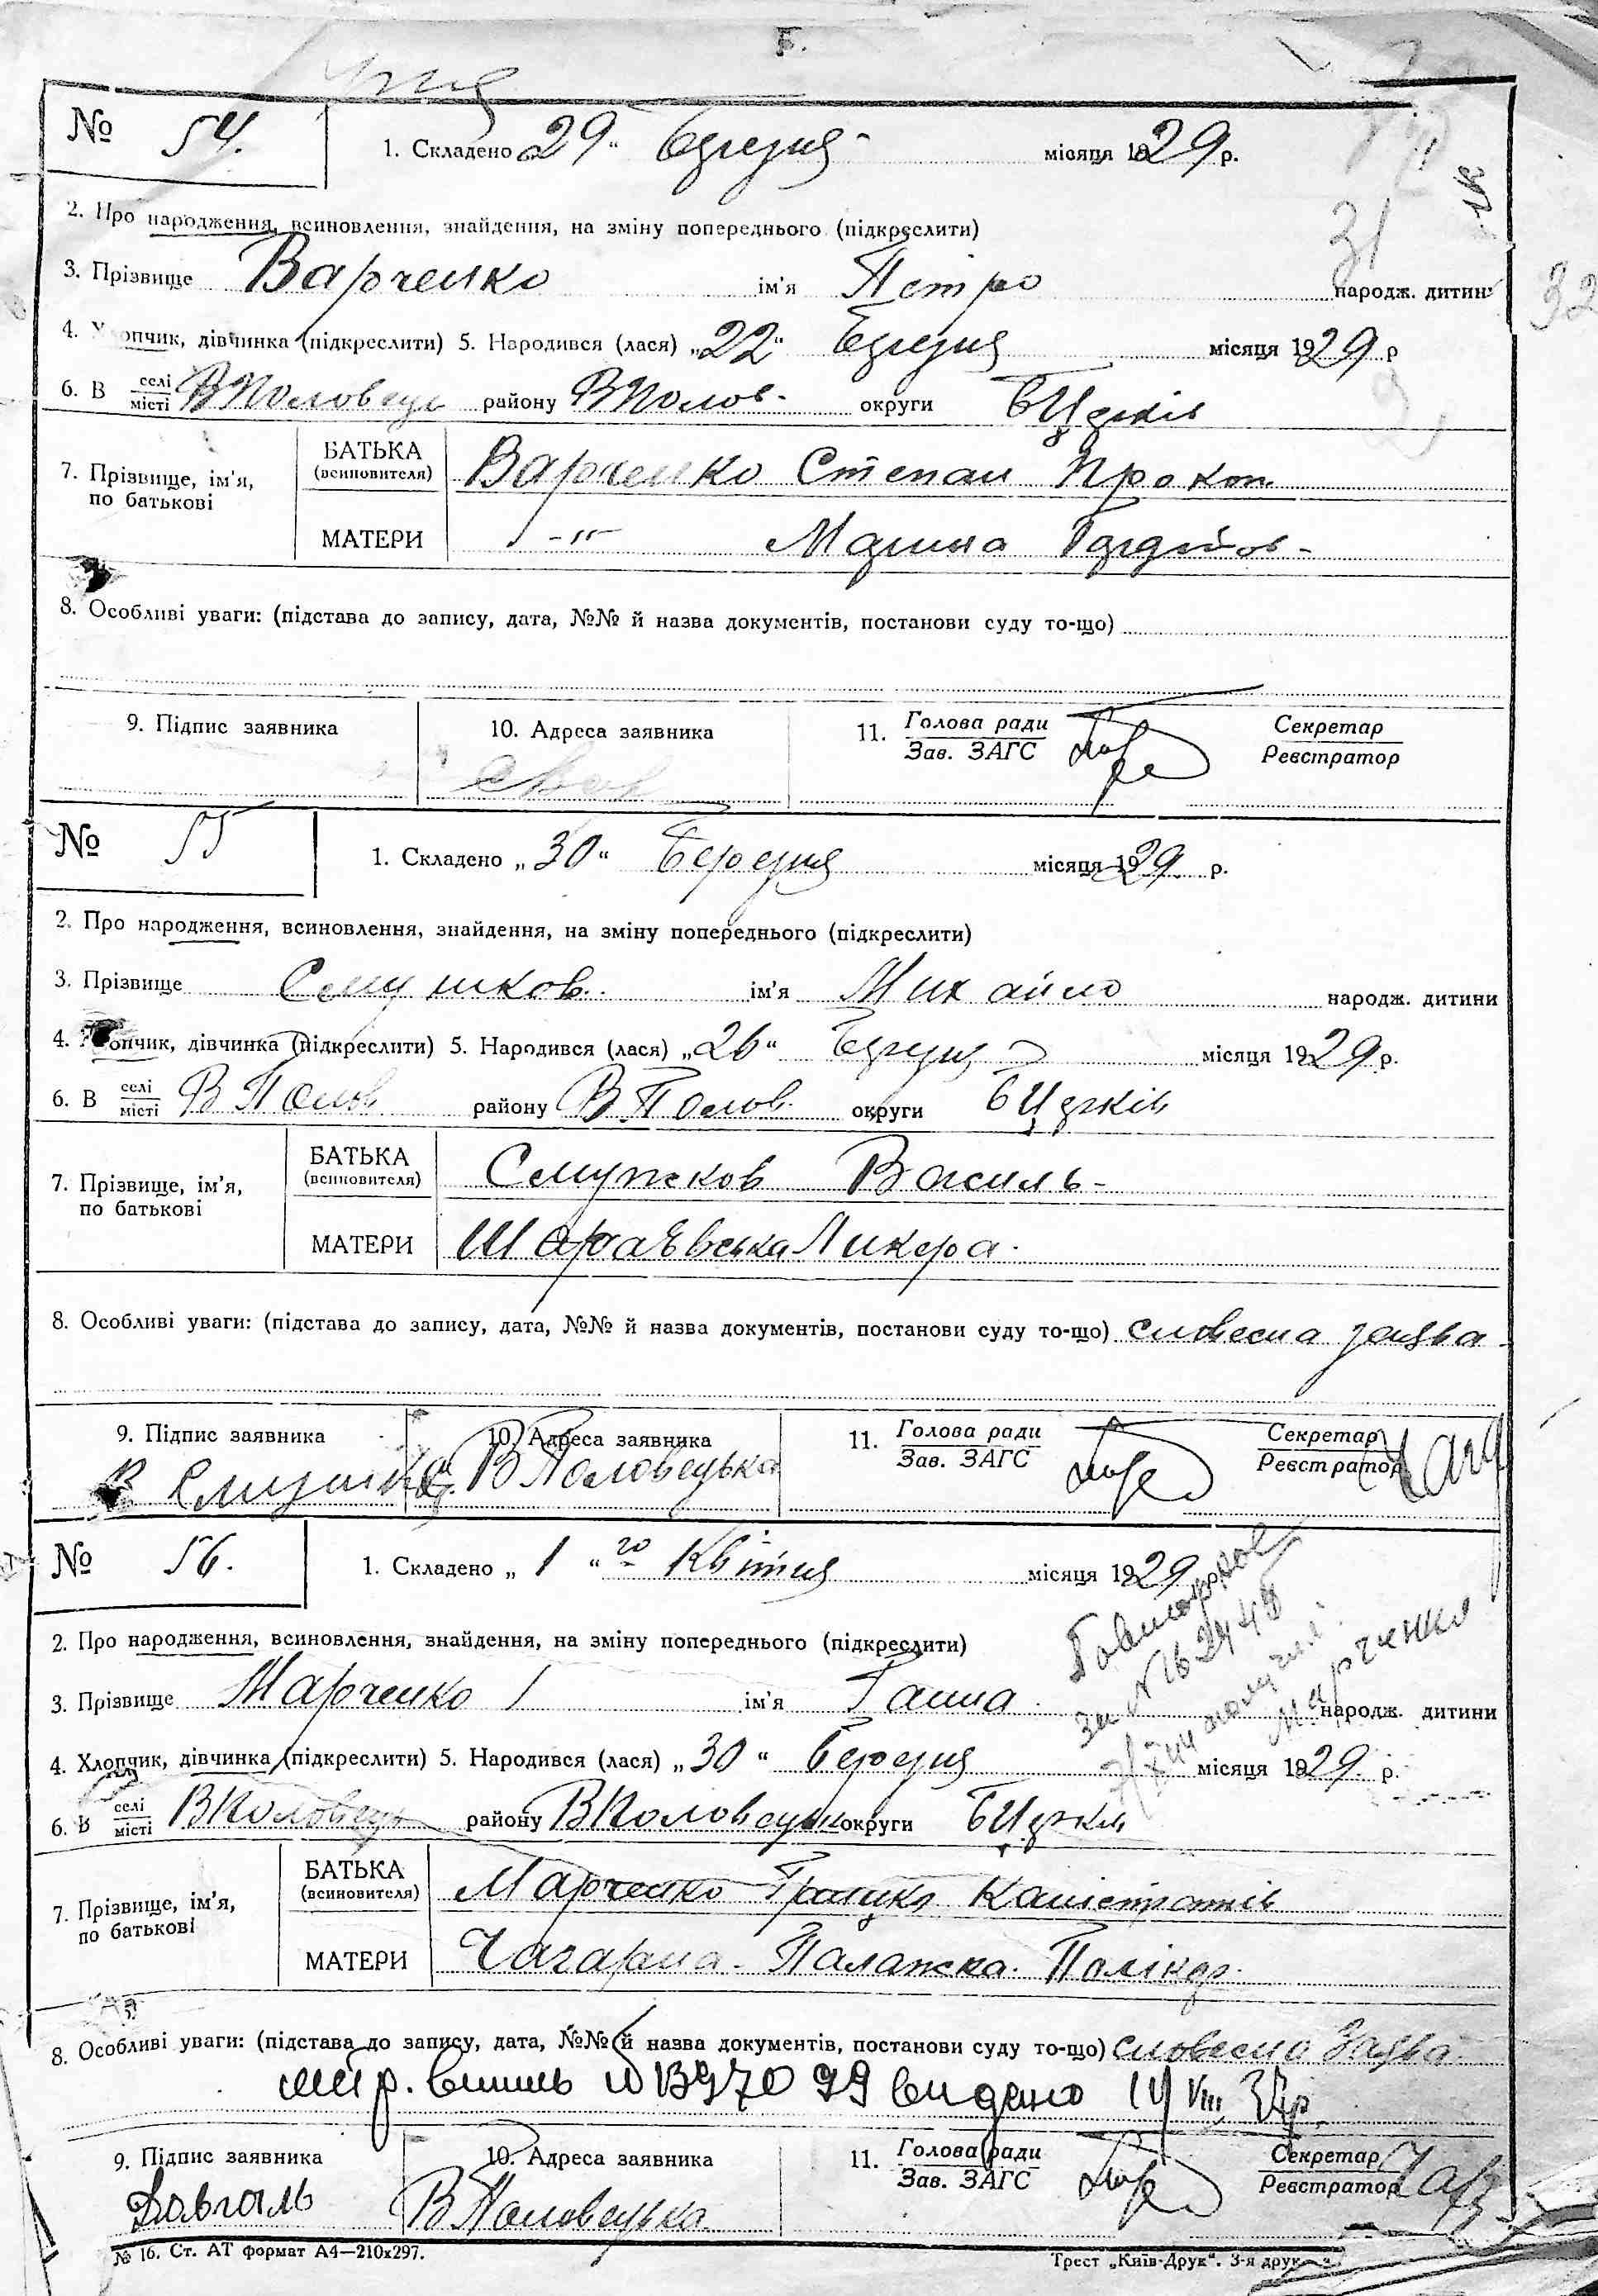 № 54. 1. Складено „29" березня місяця 1929 р.
2. Про народження, всиновлення, знайдення, на зміну попереднього (підкреслити)
3. Прізвище Варченко ім'я Петро народж. дитини
4. Хлопчик, дівчинка (підкреслити) 5. Народився (лася) „22" березня місяця 1929 р
6. В селі/місті ВПоловець району ВПолов. округи БЦерків
7. Прізвище, ім'я, по батькові
БАТЬКА (всиновителя) Варченко Степан Прокоп.
МАТЕРИ -"- Марина
8. Особливі уваги: (підстава до запису, дата, №№ й назва документів, постанови суду то-що)
9. Підпис заявника 10. Адреса заявника 11. Голова ради Секретар
Зав. ЗАГС Реєстратор
№ 55 1. Складено „30" Березня місяця 1929. р.
2. Про народження, всиновлення, знайдення, на зміну попереднього (підкреслити)
3. Прізвище ім'я Михайло народж. дитини
4. Хлопчик, дівчинка (підкреслити) 5. Народився (лася) „26" Березня місяця 1929 р.
6. В селі/місті ВПолов району В.Полов. округи БЦерків
7. Прізвище, ім'я, по батькові
БАТЬКА (всиновителя) Смужков Василь
МАТЕРИ Шараєвська Ликера.
8. Особливі уваги: (підстава до запису, дата, №№ й назва документів, постанови суду то-що) словесна заява
9. Підпис заявника 10. Адреса заявника 11. Голова ради Секретар
Зав. ЗАГС Реєстратор
В Половецька
№ 56. 1. Складено „1" го Квітня місяця 1929
2. Про народження, всиновлення, знайдення, на зміну попереднього (підкреслити)
3. Прізвище Марченко ім'я Ганна народж. дитини
4. Хлопчик, дівчинка (підкреслити) 5. Народився (лася) „30" березня місяця 1929. р.
6. В селі/місті ВПоловець району ВПоловецьк округи БЦеркв
7. Прізвище, ім'я, по батькові
БАТЬКА (всиновителя) Марченко Грицько Калістратів
МАТЕРИ Палажка. Полікар.
8. Особливі уваги: (підстава до запису, дата, №№ й назва документів, постанови суду то-що) словесна Заява
видано
9. Підпис заявника 10. Адреса заявника 11. Голова ради Секретар
Зав. ЗАГС Реєстратор
Довгаль ВПоловецька
№ 16. Ст. АТ формат А4—210х297. Трест „Київ-Друк". 3-я друк.